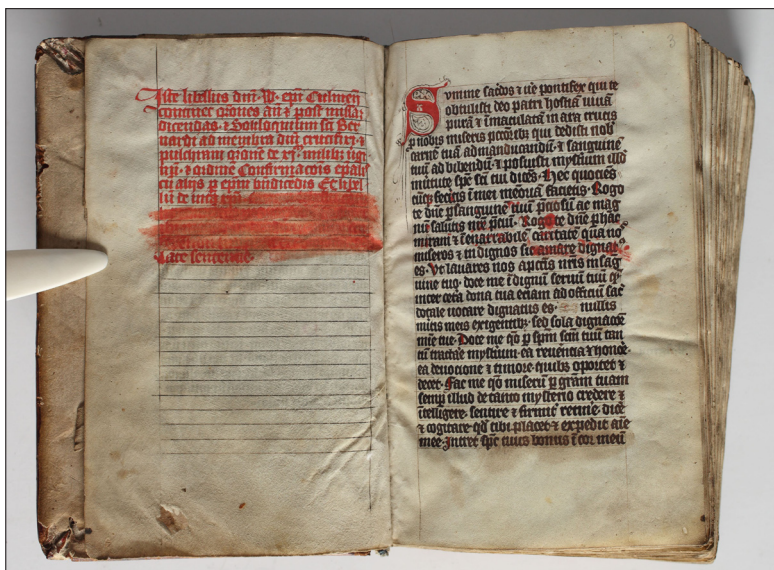 Iste libellus dni. P. epi Culmen
continet orones an̄ & post missā
dicendas. & Soliloquium sci Ber
nardi ad membra dni crucifixi. &
pulchram oronē de xi. milibus virgi
& ordinē Confirmacois
cū alijs p epm bn̄dicēdis Et
late sentencie.
Summe sacdos & ve pontifex qui te
obtulisti deo patri hostiā viuā
purā & īmaculatā in ara crucis
p nobis miseris pctoribȝ qui dedisti nob̄
carnē tuā ad manducandū & sanguinē
tuū ad bibendū. & posuisti mysteriū illd̄
in virtute spc sci tui dicēs. Hec quociēs
cūqȝ feceritis ī mei memoriā facietis. Rogo
te dn̄e p sanguinē tuū pciosū ac mag
nū salutis nrē pciū. Rogo te dn̄e p hāc
miram & īenarrabilē caritatē qua nos
miseros & in dignos sic amare dignat
es. Vt lauares nos a pctis nris in sag
uine tuo. doce me īdignū seruū tuū qȝ
inter cetera dona tua eciam ad officiū sac
dotale uocare dignatus es. nullis
meis meis exigentibȝ. sed sola dignacōe
mīe tue. Doce me qo p spm scm tuū tan
tū tractare mysteriū. ea reuerētia & honore.
ea deuocione & timore. quibȝ oportet &
decet. Fac me qo miserū p grām tuam
semp illud de tanto mysterio credere &
ītelligere. sentire & firmiter retinē. dicē
& cogitare. qd̄ tibi placet & expedit aīe
mee. Intret spc tuus bonus ī cor meū